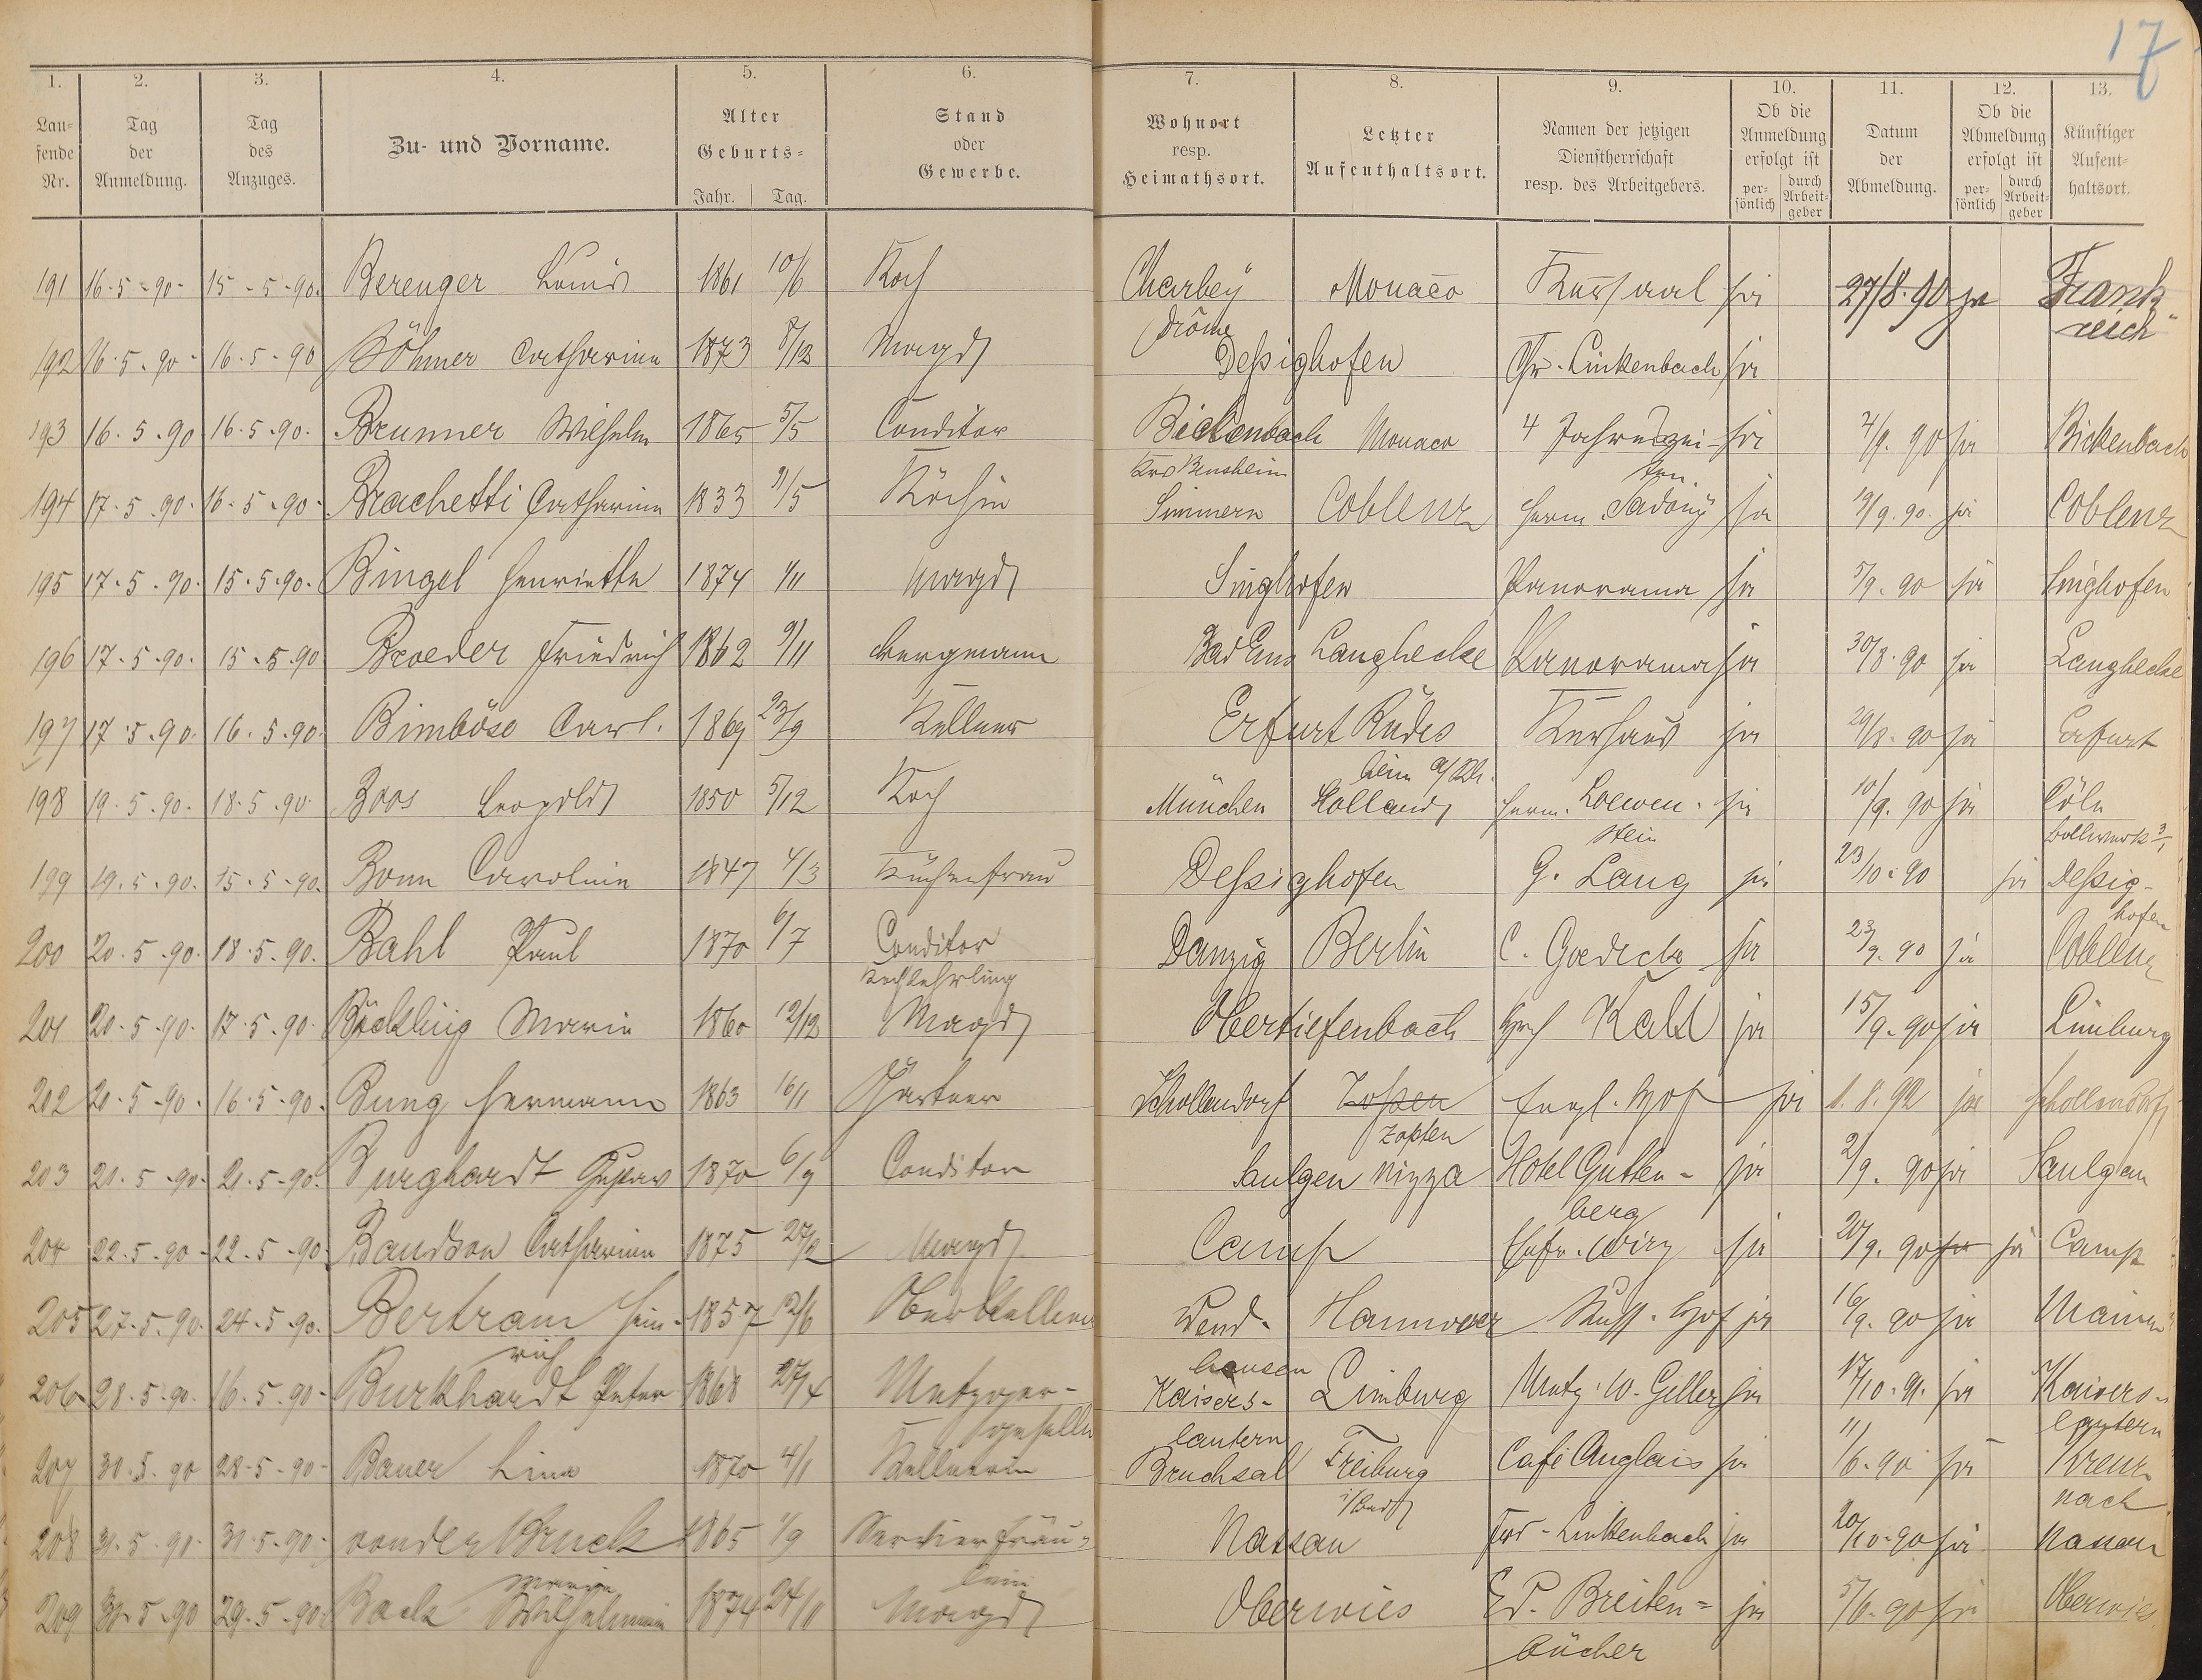 17
1. 2. 3. 4. 5. 6. 7. 8. 9. 10. 11. 12. 13.
Laufende Nr. Tag der Anmeldung. Tag des Anzuges. Zu- und Vorname. Alter Geburts= Jahr. Tag. Stand oder Gewerbe. Wohnort resp. Heimathsort. Letzter Aufenthaltsort. Namen der jetzigen Dienstherrschaft resp. des Arbeitgebers. Ob die Anmeldung erfolgt ist persönlich durch Arbeitgeber Datum der Abmeldung. Ob die Abmeldung erfolgt ist persönlich durch Arbeitgeber Künftiger Aufenthaltsort.
191 16-5-90- 15-5-90. Berenger Louis 1861 10/6 Koch Charbey Monaco Kursaal ja 27/8.90 ja Frank-
Drôme reich
192 16.5.90- 16.5-90 Böhmer Catharina 1873 8/12 Magd Deßighofen Fr. Linkenbach ja
193 16.5.90 16.5.90. Brunner Wilhelm 1865 5/5 Conditor Bickenbach Monaco 4 Jahreszei- ja 4/9. 90 ja Bickenbach
Krs Bensheim ten.
194 17.5.90. 16-5-90- Brachetti Catharina 1833 9/5 Köchin Simmern Coblenz Herm. Sadony ja 19/9.90. ja Coblenz
195 17.5.90. 15.5.90. Bingel Henriette 1874 1/11 Magd Singhofen Panorama ja 5/9. 90 ja Singhofen
196 17-5-90. 15.5.90 Broeder Friedrich 1862 9/11 Bergmann Bad Ems Langhecke Panorama ja 30/8.90 ja Langhecke
197 17.5.90. 16.5.90. Bimböse Carl. 1869 23/9 Kellner Erfurt Rüdes Kurhaus ja 29/8.90 ja Erfurt
heim a/Rh.
198 19.5.90. 18.5.90. Boos Leopold 1850 5/12 Koch München Holland Herm. Loewen- ja 10/9. 90 ja Cöln
stein Bollwerk 3/1
199 19.5.90. 15.5-90. Bonn Carolina 1847 4/3 Küchenfrau Deßighofen G. Lang ja 23/10.90 ja Deßig-
hofen
200 20.5.90. 18.5.90. Bahl Paul 1870 6/7 Conditor Danzig Berlin C. Goedecke ja 23/9.90 ja Coblenz
Kochlehrling
201 20.5.90. 17.5.90. Böckling Maria 1860 12/12 Magd Obertiefenbach Hch Kalt ja 15/9.90 ja Limburg
202 20.5-90. 16.5.90. Bung Hermann 1863 16/1 Gärtner Schollendorf Zoßen Engl. Hof ja 1.8.92 ja Schollendorf
Zopten
203 21.5-90- 21.5-90. Burghardt Gustav 1870 6/9 Conditor Saulgen Nizza Hotel Gutten- ja 2/9. 90 ja Saulgau
berg
204 22.5-90- 22.5-90. Catharina 1875 27/2 Magd Camp Wirz ja 20/9. 90 ja ja Camp
205 27.5.90. 24.5.90. Bertram Hein- 1857 12/6 Oberkellner Wend- Hannover Russ. Hof ja 16/9. 90 ja Mainz
rich hausen
206 28.5.90. 16.5.90- Burkhardt Peter 1868 27/4 Metzger- Kaisers- Limburg Metz. W. Giller ja 17/10.91. ja Kaisers-
geselle lautern lautern
207 30.5.90 28-5-90- Bauer Lina 1870 4/1 Kellnerin Bruchsal Freiburg Café Anglais ja 11/6.90 ja Kreuz-
i/Bad nach
208 31.5.90. 31.5.90. von der Bruck 1865 1/9 Servierfräu- Nassau Fr. Linkenbach ja 20/10.90 ja Nassau
Maria lein
209 31.5.90 29.5.90. Back Wilhelmine 1874 24/11 Magd Oberwies Ed. Breiten= ja 5/6.90 ja Oberwies
bücher